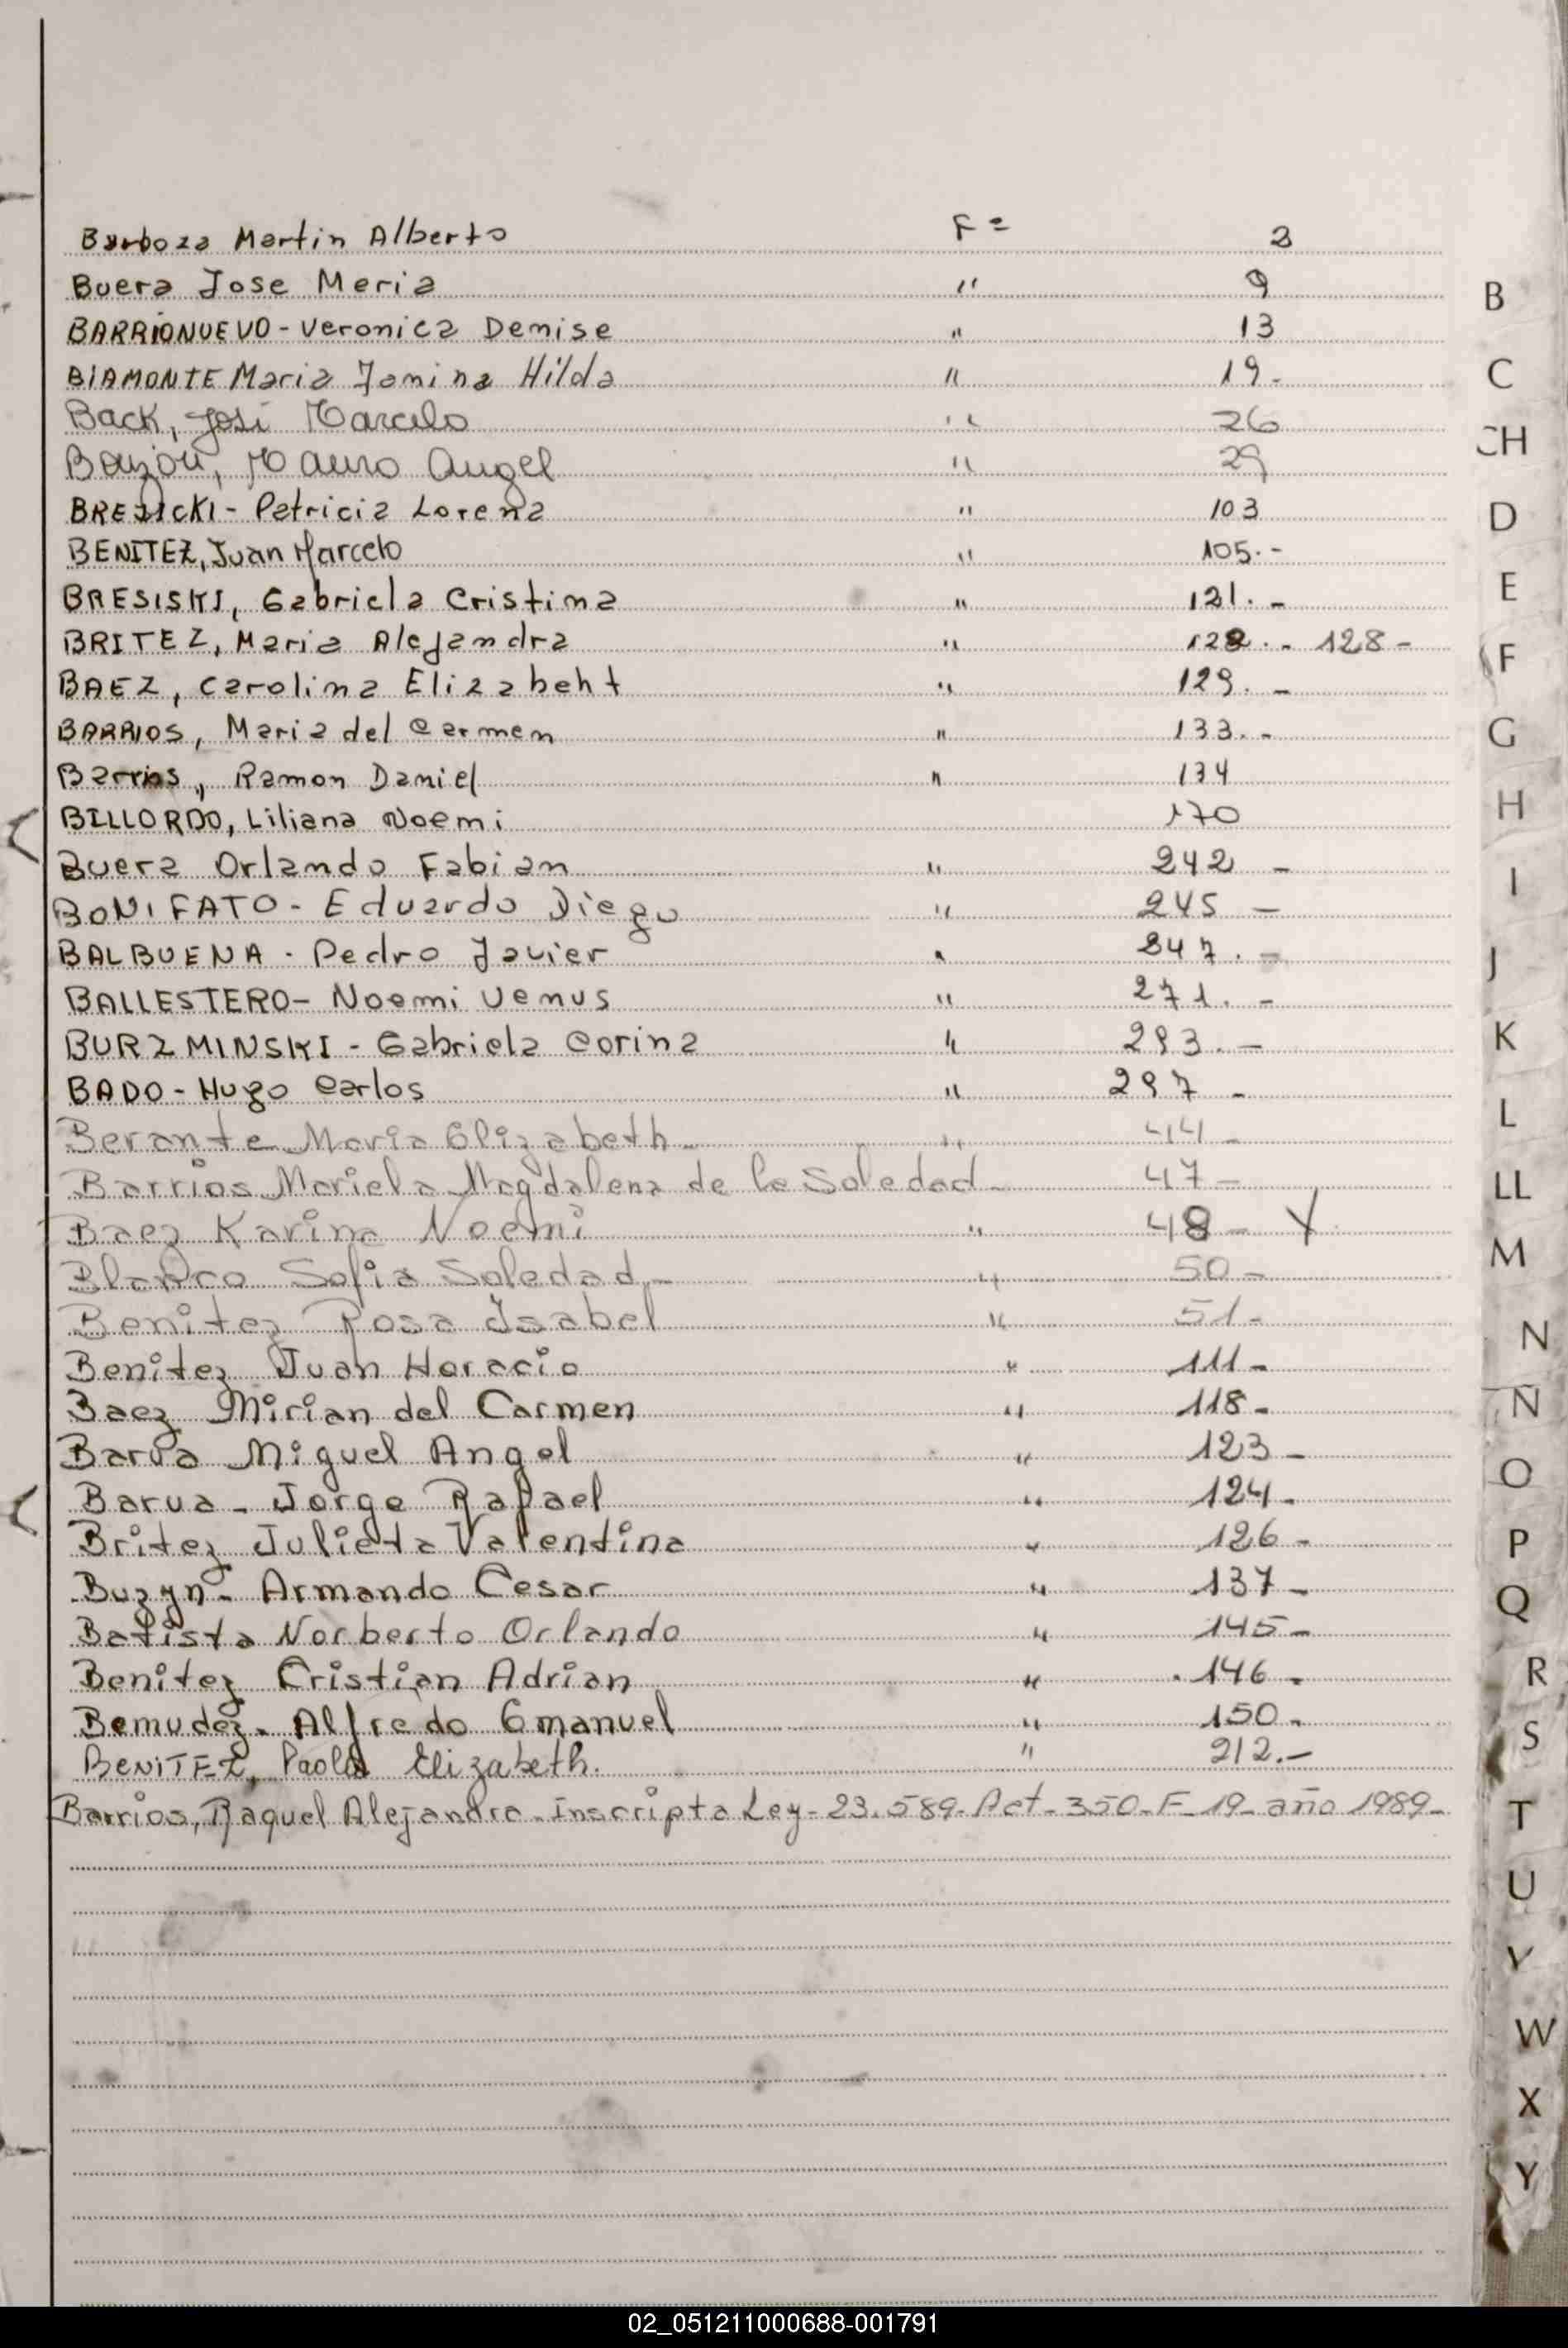 Barboza Martin Alberto F= 3
Buera Jose Meria " 9
BARRIONUEVO - Veronica Demise " 13
BIAMONTE Maria Jamina Hilda " 19.-
Back, José Marcelo " 26
Mauro Angel " 29
BREJICKI - Patricia Lorena " 103
BENITEZ, Juan Marcelo " 105.-
BRESISKI, Gabriela Cristina " 121.-
BRITEZ, Maria Alejandra " 128.- 128-
BAEZ, Carolina Elizabeht " 129.-
BARRIOS, Maria del Carmen " 133.-
Barrios, Ramon Daniel " 134
BILLORDO, Liliana Noemi 170
Buera Orlando Fabian " 242 -
BONIFATO - Eduardo Diego " 245 -
BALBUENA - Pedro Javier " 247.-
BALLESTERO - Noemi Venus " 271.-
BURZMINSKI - Gabriela Corina " 293.-
BADO - Hugo Carlos " 297 -
Berante Maria Elizabeth - " 44 -
Barrios Mariela Magdalena de la Soledad - 47 -
Baez Karina Noemi " 48 -
Blanco Sofia Soledad - " 50 -
Benitez Rosa Isabel " 51 -
Benitez Juan Horacio " 111 -
Baez Mirian del Carmen " 118 -
Barua Miguel Angel " 123 -
Barua - Jorge Rafael " 124 -
Britez Julieta Valentina " 126 -
Buzyn - Armando Cesar " 137 -
Batista Norberto Orlando " 145 -
Benitez Cristian Adrian " 146 -
Bemudez - Alfredo Emanuel " 150 -
BENITEZ, Paola Elizabeth. " 212.-
Barrios, Raquel Alejandra - Inscripta Ley - 23.589 - Act - 350 - F - 19 - año 1989 -
B
C
CH
D
E
F
G
H
I
J
K
L
LL
M
N
Ñ
O
P
Q
R
S
T
U
V
W
X
Y
02_051211000688-001791